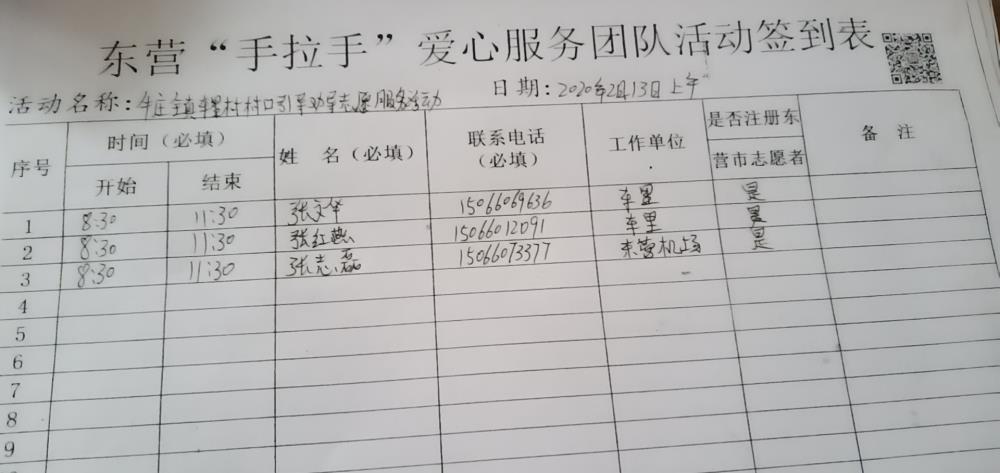 东营“手拉手”爱心服务团队活动签到表
活动名称：牛庄镇车里村村口引导劝导志愿服务活动 日期：2020年2月13日上午
序号 时间（必填） 姓 名（必填） 联系电话（必填） 工作单位 是否注册东营市志愿者 备 注
开始 结束
1 8:30 11:30 张文华 15066069636 车里 是
2 8:30 11:30 张红燕 15066012091 车里 是
3 8:30 11:30 张志磊 15066073377 东营机场 是
4
5
6
7
8
9